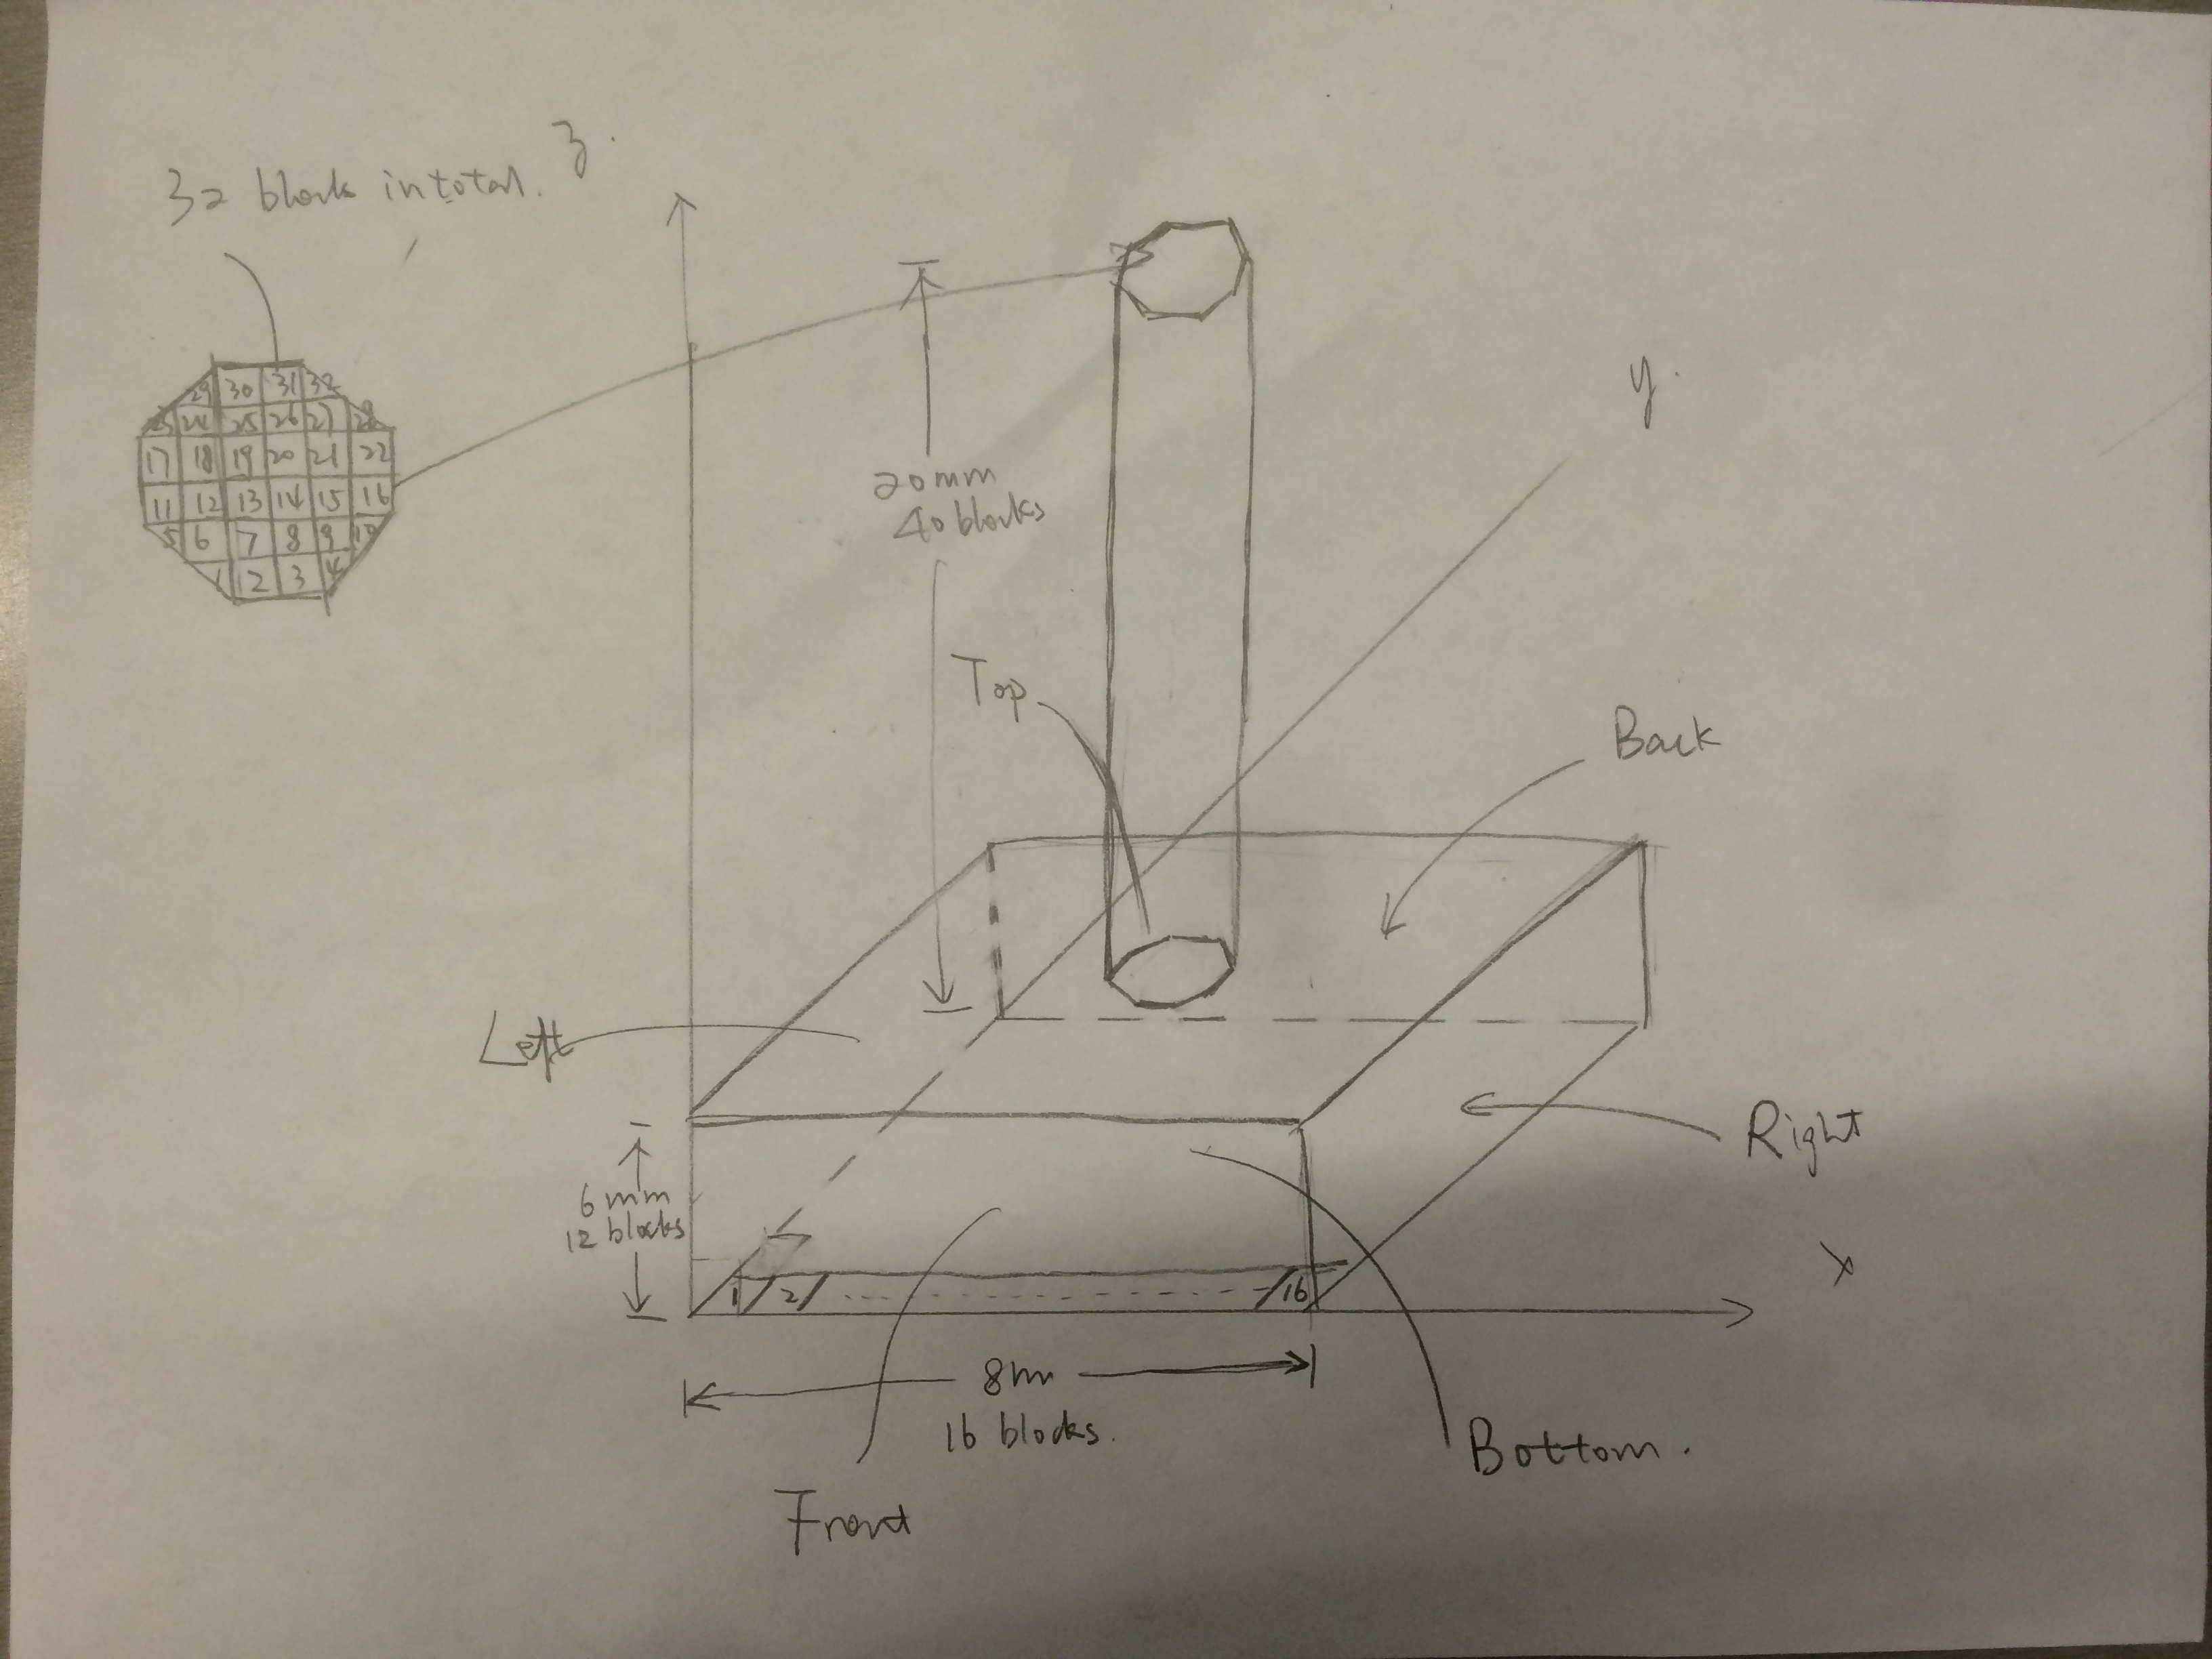 z.
32 block in total.
29 30 31 32
23 24 25 26 27 28
17 18 19 20 21 22
11 12 13 14 15 16
5 6 7 8 9 10
1 2 3 4
20mm
40 blocks
y.
Top
Back
Left
Right
6mm
12 blocks
x
1 2 16
8m
16 blocks.
Bottom.
Front